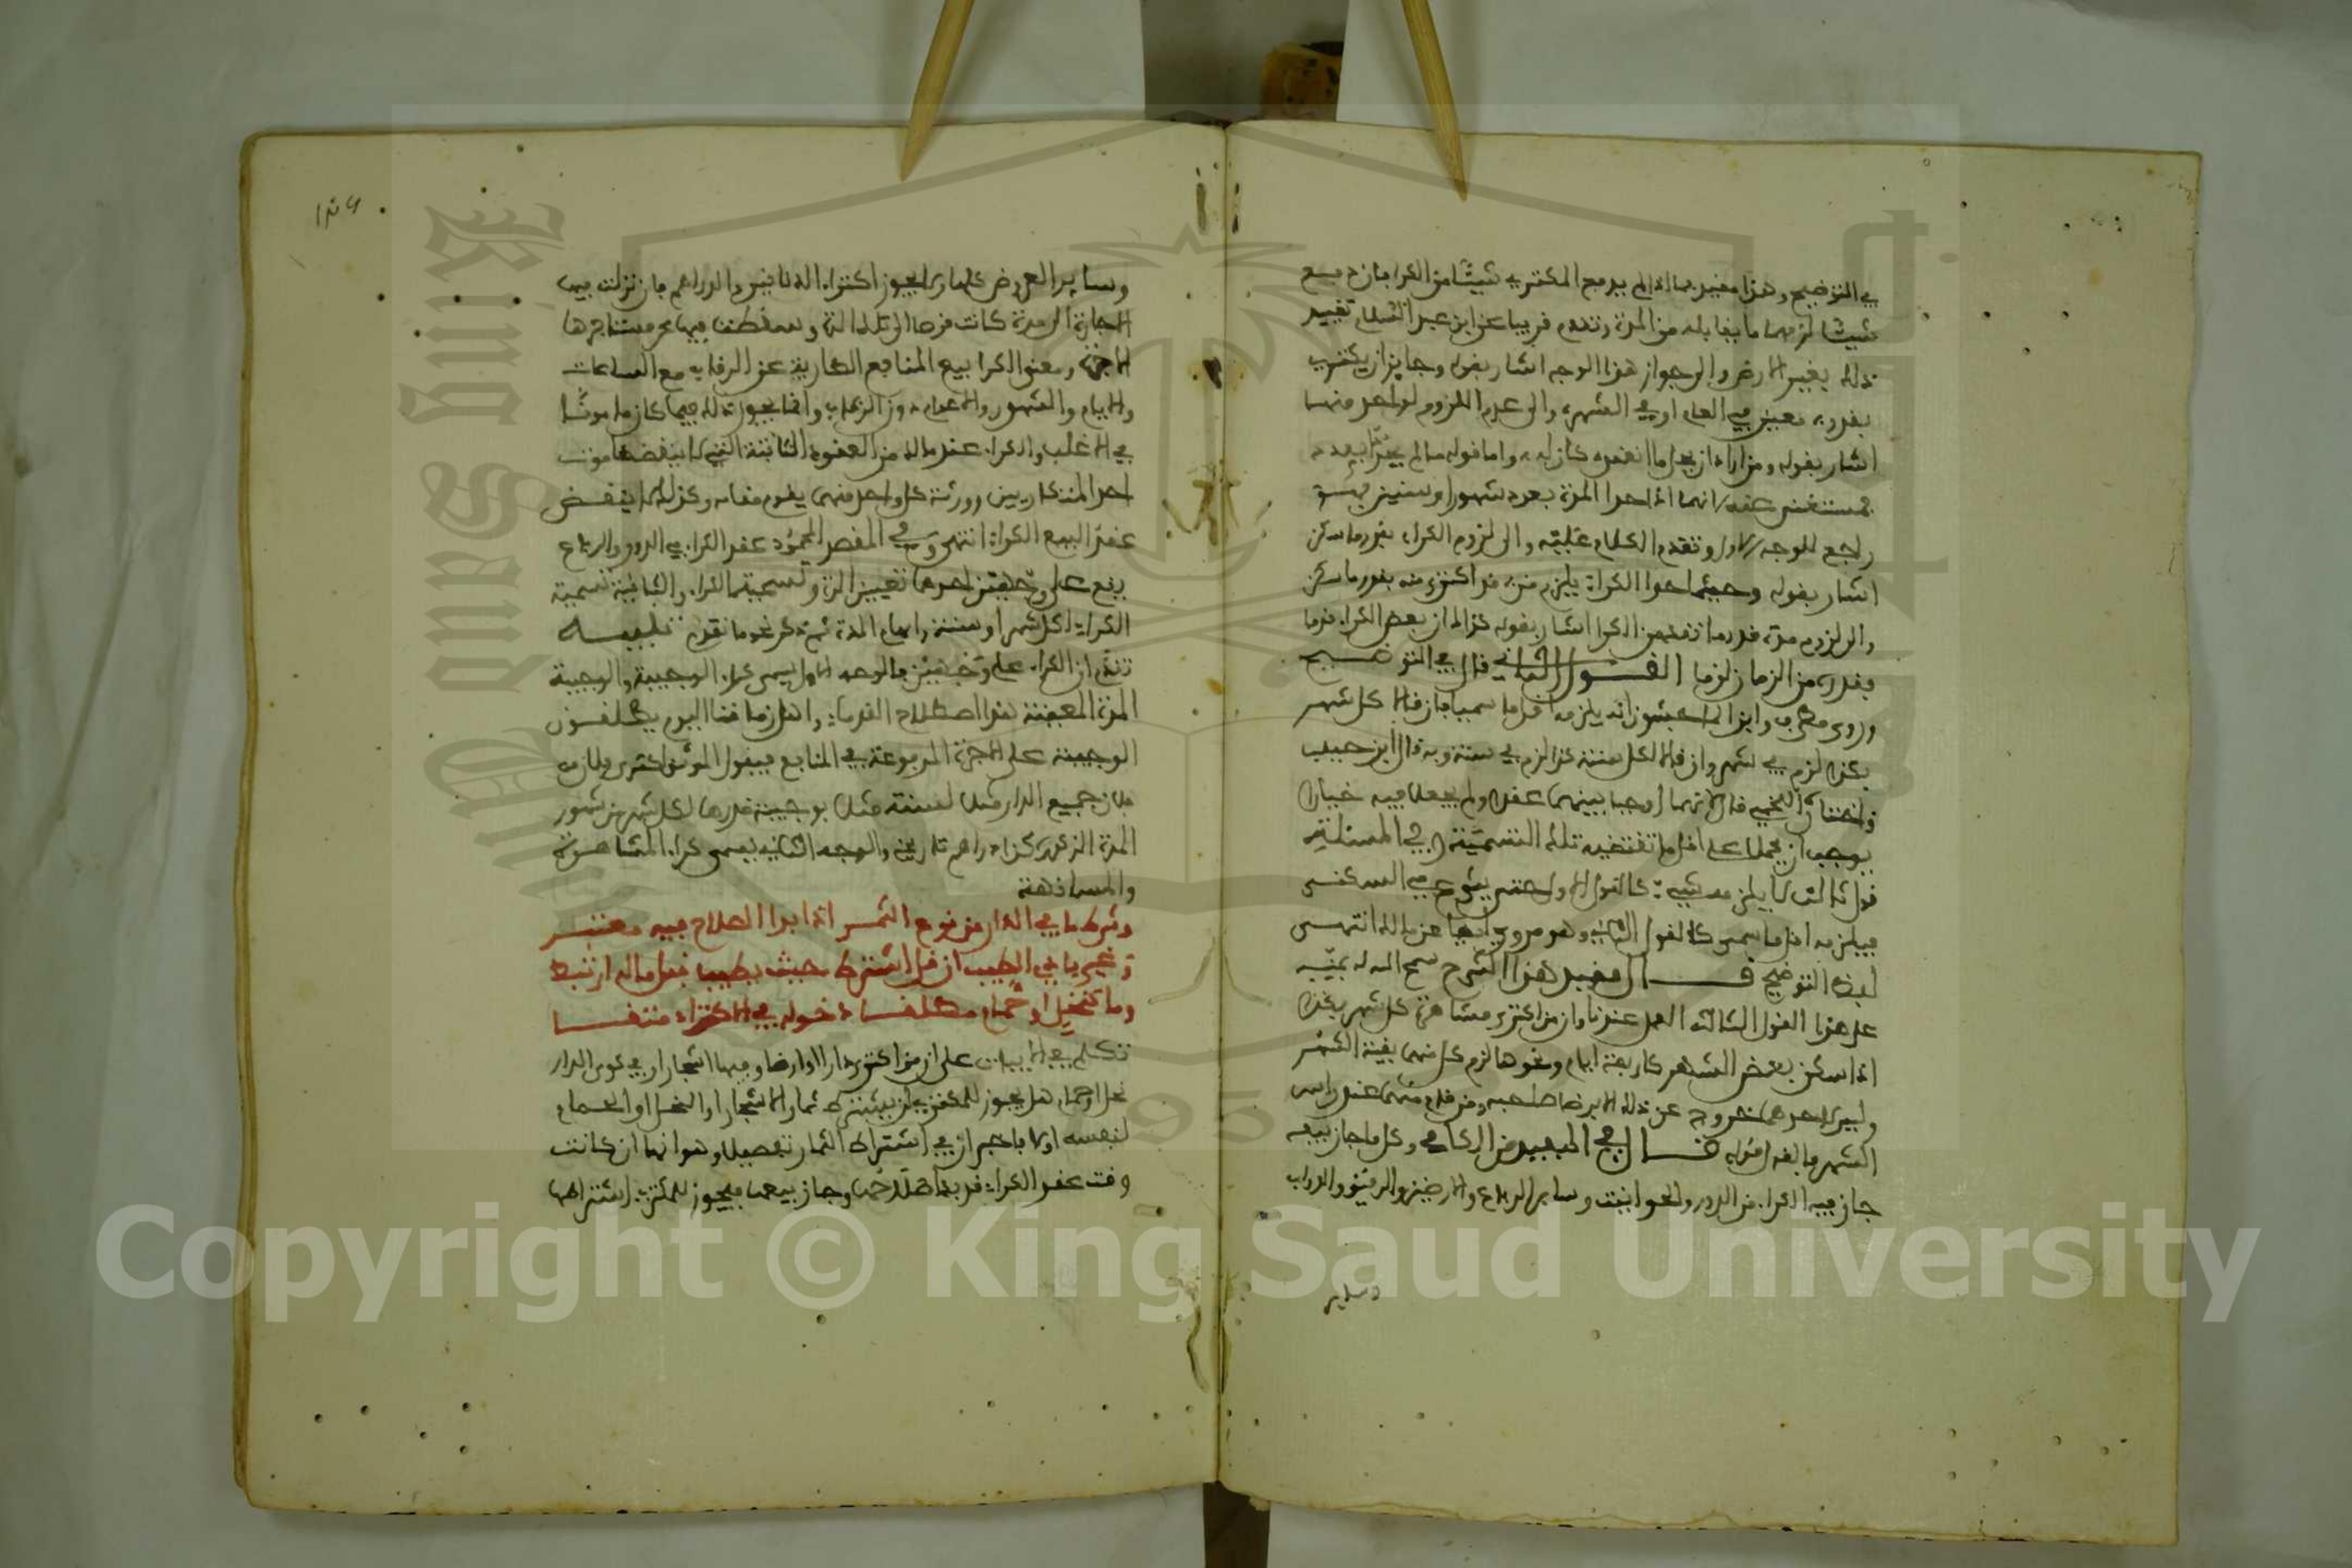 في التوضيح وهذا مقيد بما اذا لم يدفع المكتري شيئا من الكرا فان دفع
شيئا لزمهما ما يقابله من المدة وتقدم قريبا عن ابن عبد السلام تقييد
ذلك بغير الارض والى جواز هذا الوجه اشار بقوله وجايز ان يكتري
بقدر معين في العام او في الشهر والى عدم اللزوم لواحد منهما
اشار بقوله ومن اراد ان يحل ما انعقد كان له واما قوله ما لم يحد بعدد
فمستغنى عنه لانهما اذا حدا المدة بعدد شهور او سنين فهو
راجع للوجه الاول وتقدم الكلام عليه والى لزوم الكراء بقدر ما سكن
اشار بقوله وحيثما حلا الكراء يلزم من قد اكترى منه بقدر ما سكن
والى لزوم مدة قدر ما نقد من الكرا اشار بقوله كذاك ان بعض الكراء قدما
فقدره من الزمان لزما القول الثاني قال في التوضيح
وروى مطرف وابن الماجشون انه يلزمه اقل ما سميا فان قالا كل شهر
بكذا لزم في شهر وان قالا لكل سنة كذا لزم في سنة وبه قال ابن حبيب
واختاره اللخمي قال لانهما اوجبا بينهما عقدا ولم يجعلا فيه خيارا
فوجب ان يحملا على اقل ما تقتضيه تلك التسمية وفي المسئلة
قول ثالث لا يلزمه شيء كالقول الاول حتى يشرع في السكنى
فيلزمه اقل ما سمى كالقول الثاني وهو مروي ايضا عن مالك انتهى
لفظ التوضيح قال مقيد هذا الشرح سمح الله له بمنه
على هذا القول الثالث العمل عندنا وان من اكترى مشاهرة كل شهر بكذا
اذا سكن بعض الشهر كاربعة ايام ونحوها لزم كل منهما بقية الشهر
وليس لاحدهما خروج عن ذلك الا برضا صاحبه ومن قام منهما عند راس
الشهر فالقول قوله قال في المفيد من الكافي وكل ما جاز بيعه
جاز فيه الكراء من الدور والحوانيت وساير الرباع والارضين والرقيق والدواب
وساير
وساير العروض كلها ولا يجوز اكتراء الدنانير والدراهم فان نزلت فيها
الاجارة الى مدة كانت قرضا الى تلك المدة وسقطت فيها عن مستاجرها
الاجرة ومعنى الكرا بيع المنافع الطارية عن الرقاب مع الساعات
والايام والشهور والاعوام دون الرقاب وانما يجوز ذلك فيما كان مامونا
في الاغلب والكراء عند مالك من العقود الثابتة التي لا ينقضها موت
احد المتكاريين وورثة كل واحد منهما يقوم مقامه وكذلك لا ينقض
عقد البيع الكراء انتهى وفي المقصد المحمود عقد الكرا في الدور والرباع
يقع على وجهين احدهما تعيين المدة وتسمية الكراء والثاني تسمية
الكراء لكل شهر او سنة وابهام المدة ثم ذكر نحو ما تقدم تنبيه
تقدم ان الكراء على وجهين فالوجه الاول يسمى كراء الوجيبة والوجيبة
المدة المعينة هذا اصطلاح القدماء واهل زماننا اليوم يطلقون
الوجيبة على الاجرة المدفوعة في المنافع فيقول الموثق اكترى فلان من
فلان جميع الدار مثلا لسنة مثلا بوجيبة قدرها لكل شهر من شهور
المدة المذكورة كذا دراهم تاريخ والوجه الثاني يسمى كراء المشاهرة
والمسانهة
وشرط ما في الدار من نوع الثمر اذا بدا الصلاح فيه معتبر
وغير بادي الطيب ان قل اشترط حيث يطيب قبل ما له ارتبط
وما كنخل او حمام مطلقا دخوله في الاكتراء متقا
تكلم في الابيات على ان من اكترى دارا او ارضا وفيها اشجار او في كوى الدار
نحل او حمام هل يجوز للمكتري ان يشترط ثمار الاشجار او النحل او الحمام
لنفسه او لا فاخبر ان في اشتراط الثمار تفصيلا وهو انها ان كانت
وقت عقد الكراء قد بدا صلاحها وجاز بيعها فيجوز للمكتري اشتراطها